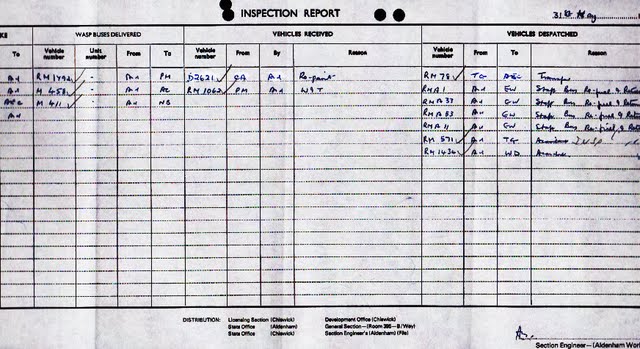 INSPECTION REPORT
31st May
KE WASP BUSES DELIVERED VEHICLES RECEIVED VEHICLES DISPATCHED
To Vehicle number Unit number From To Vehicle number From By Reason Vehicle number From To Reason
An RM 1492 - An PM D2621 CA An Re-paint RM 78 TG A&C Transfer
An M 458 - An AC RM 1062 PM An W&T RMA 1 An GW Staff Bus Re-fuel & Return
A&C M 411 - An NB RMA 37 An GW Staff Bus Re-fuel & Return
An RMA 53 An GW Staff Bus Re-fuel & Return
RMA 11 An GW Staff Bus Re-fuel & Return
RM 571 An TG
RM 1434 An WD
DISTRIBUTION: Licensing Section (Chiswick) Development Office (Chiswick)
State Office (Aldenham) General Section—(Room 395—B/Way)
State Office (Chiswick) Section Engineer's (Aldenham) (File)
Section Engineer—(Aldenham Wor